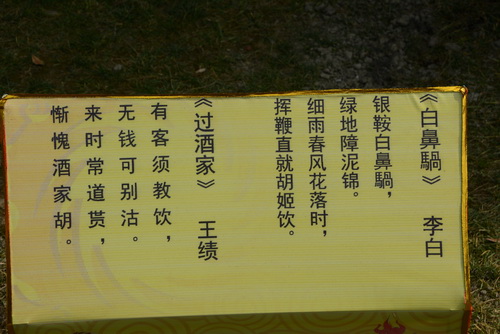 《白鼻騧》 李白
银鞍白鼻騧，
绿地障泥锦。
细雨春风花落时，
挥鞭直就胡姬饮。
《过酒家》 王绩
有客须教饮，
无钱可别沽。
来时常道贳，
惭愧酒家胡。